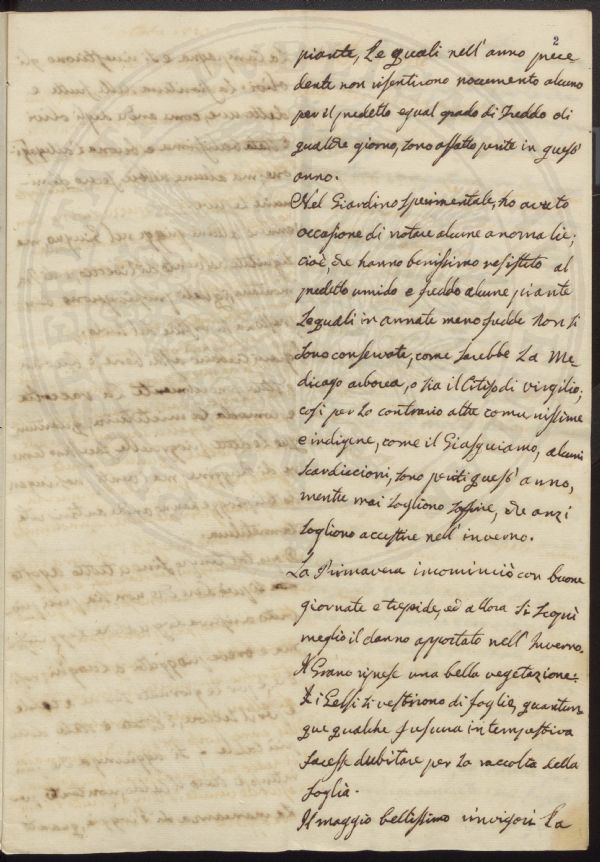 2
piante, le quali nell'anno prece
dente non risentirono nocumento alcuno
per il predetto egual grado di freddo di
qualche giorno, sono affatto perite in quest'
anno.
Nel Giardino sperimentale, ho avuto
occasione di notare alcune anomalie;
cioè, che hanno benissimo resistito al
predetto umido e freddo alcune piante
le quali in annate meno fredde non si
sono conservate, come sarebbe la Me
dicago arborea, o sia il Citiso di virgilio;
così per lo contrario altre comunissime
e indigene, come il Giasquiamo, alcuni
scardiccioni, sono periti quest'anno,
mentre mai sogliono soffrire, che anzi
sogliono accestire nell'inverno.
La Primavera incominciò con buone
giornate e tiepide, ed allora si scoprì
meglio il danno apportato nell'Inverno.
Il Grano riprese una bella vegetazione.
E i Gelsi si vestirono di foglie, quantun
que qualche frescura intempestiva
facesse dubitare per la raccolta della
foglia.
Il maggio bellissimo rinvigorì la